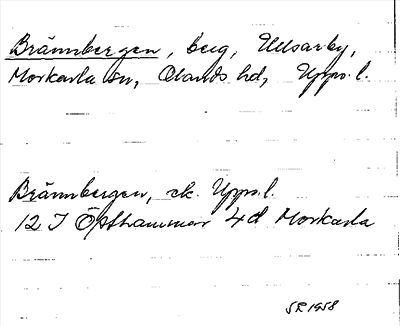 Brännbergen, berg, Ulvsarby,
Morkarla sn, Olands hd, Upps. l.
Brännbergen, ek. Upps. l.
12 I Östhammar 4d Morkarla
SR 1958